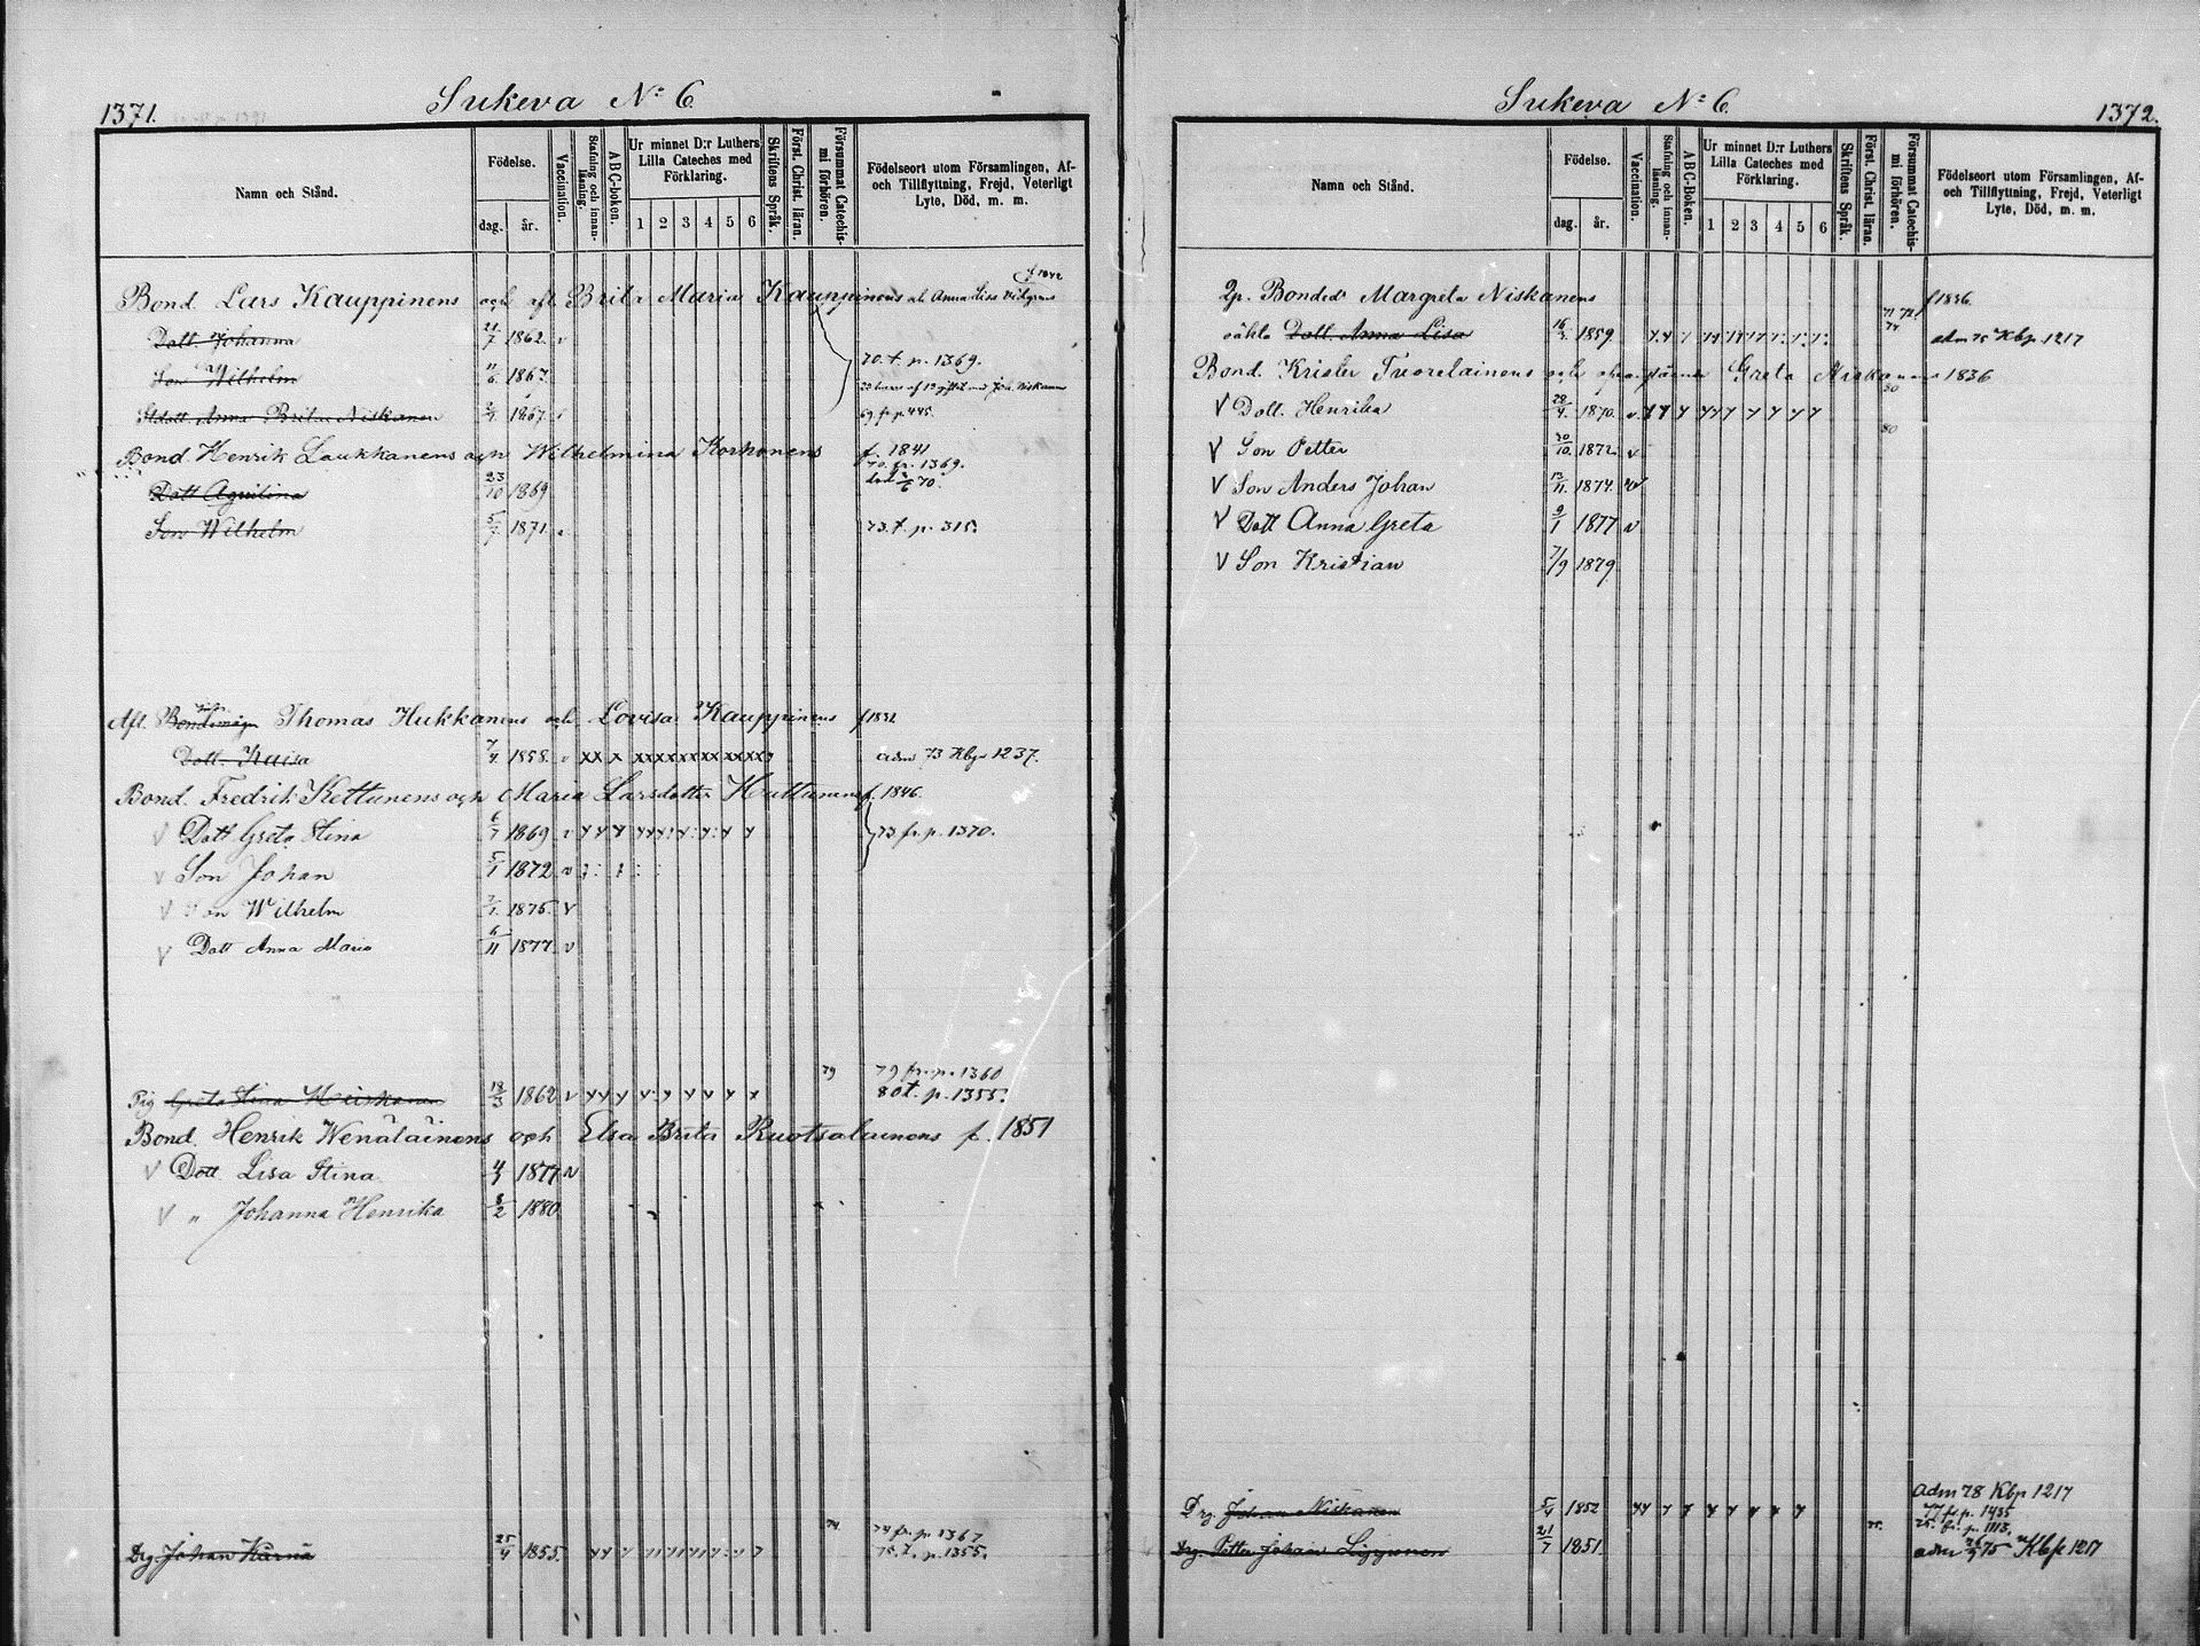 1371.
Sukeva No 6.
Namn och Stånd.
Födelse.
dag.
år.
Vaccination.
Stafning och innanläsning.
ABC-boken.
Ur minnet D:r Luthers Lilla Cateches med Förklaring.
1 2 3 4 5 6
Skriftens Språk.
Först. Christ. läran.
Försummat Catechismi förhören.
Födelseort utom Församlingen, Af- och Tillflyttning, Frejd, Veterligt Lyte, Död, m. m.
f 1842
Bond. Lars Kauppinens och afl Brita Maria Kauppinens
Dott. Johanna 21/7 1862. v
70. t. p. 1369.
Son Wilhelm 11/6 1867.
Anna Brita Niskanen 1867. 69 fr. p. 445.
Bond. Henrik Laukkanens och Wilhelmina Korhonens f. 1841
70. fr. 1369.
Dott Aqvilina 23/10 1869 död 2/6 70.
Son Wilhelm 5/7 1871. 73. t. p. 315.
Afl. Thomas Hukkanens och Lovisa Kauppinens f 1832
Dott. Kaisa 7/4 1858. v xx x xxxxxxxxxxxx adm 73 Kbp 1237.
Bond. Fredrik Kettunens och Maria Larsdotter Huttunens f. 1846.
V Dott Greta Stina 6/7 1869 v 73 fr. p. 1370.
v Son Johan 5/1 1872 v
V Son Wilhelm 7/1. 1875. v
V Dott Anna Maria 6/11 1877. v
79 79 fr. p. 1360
Pig Greta Stina 13/3 1862 v 80 t. p. 1355.
Bond. Henrik Wenäläinens och Elsa Brita Ruotsalainens f. 1851
V Dott. Lisa Stina 1877 v
V " Johanna Henrika 8/2 1880.
74. 74 fr. p. 1367
Drg. Johan Kärnä 25/4 1855. 75. t. p. 1355.
Sukeva No 6.
1372.
Namn och Stånd.
Födelse.
dag.
år.
Vaccination.
Stafning och innanläsning.
ABC-boken.
Ur minnet D:r Luthers Lilla Cateches med Förklaring.
1 2 3 4 5 6
Skriftens Språk.
Först. Christ. läran.
Försummat Catechismi förhören.
Födelseort utom Församlingen, Af- och Tillflyttning, Frejd, Veterligt Lyte, Död, m. m.
Margreta Niskanens f 1836.
oäkta Dott. Anna Lisa 1859. adm 75 Kbp. 1217
Bond. Greta Niskanens 1836
V Dott. Henrika 28/4. 1870. v
80
V Son Petter 30/10. 1872. v
V Son Anders Johan 13/11. 1874.
V Dott Anna Greta 9/1 1877 v
V Son Kristian 7/9 1879
adm 78 Kbp 1217
Drg. Johan Niskanen 5/4 1852 77 fr. p. 1435
75. fr. p. 1113.
Drg. Petter Johan Lipponen 21/7 1851. adm 75 Kbp 1217